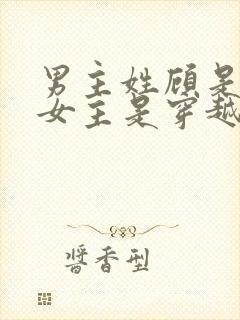 男主姓顾是
女主是穿越
醬香型